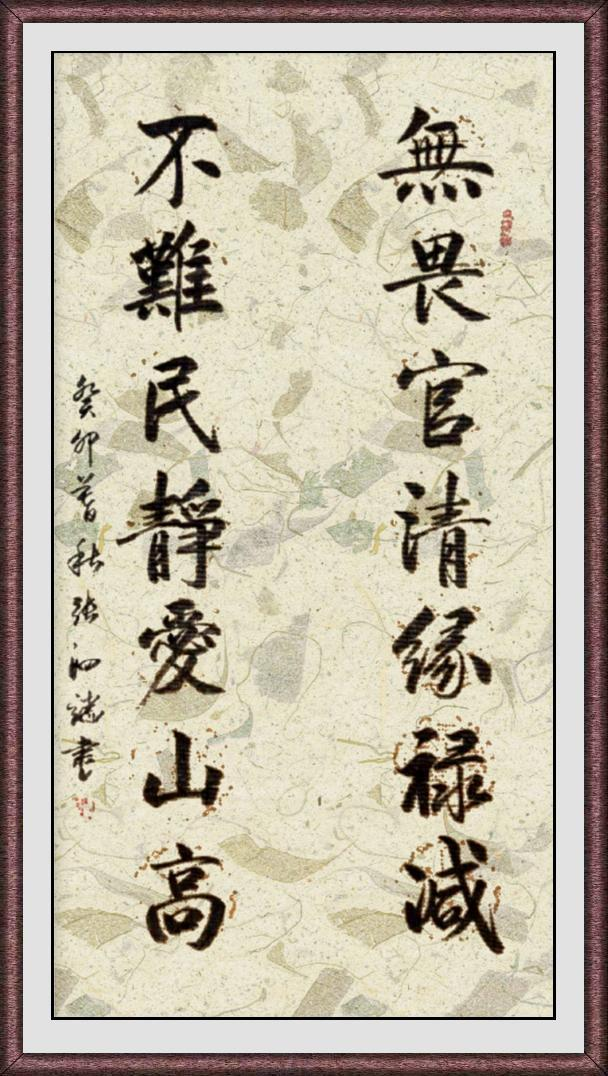 無畏官清緣禄減
不難民靜愛山高
癸卯暮秋張書